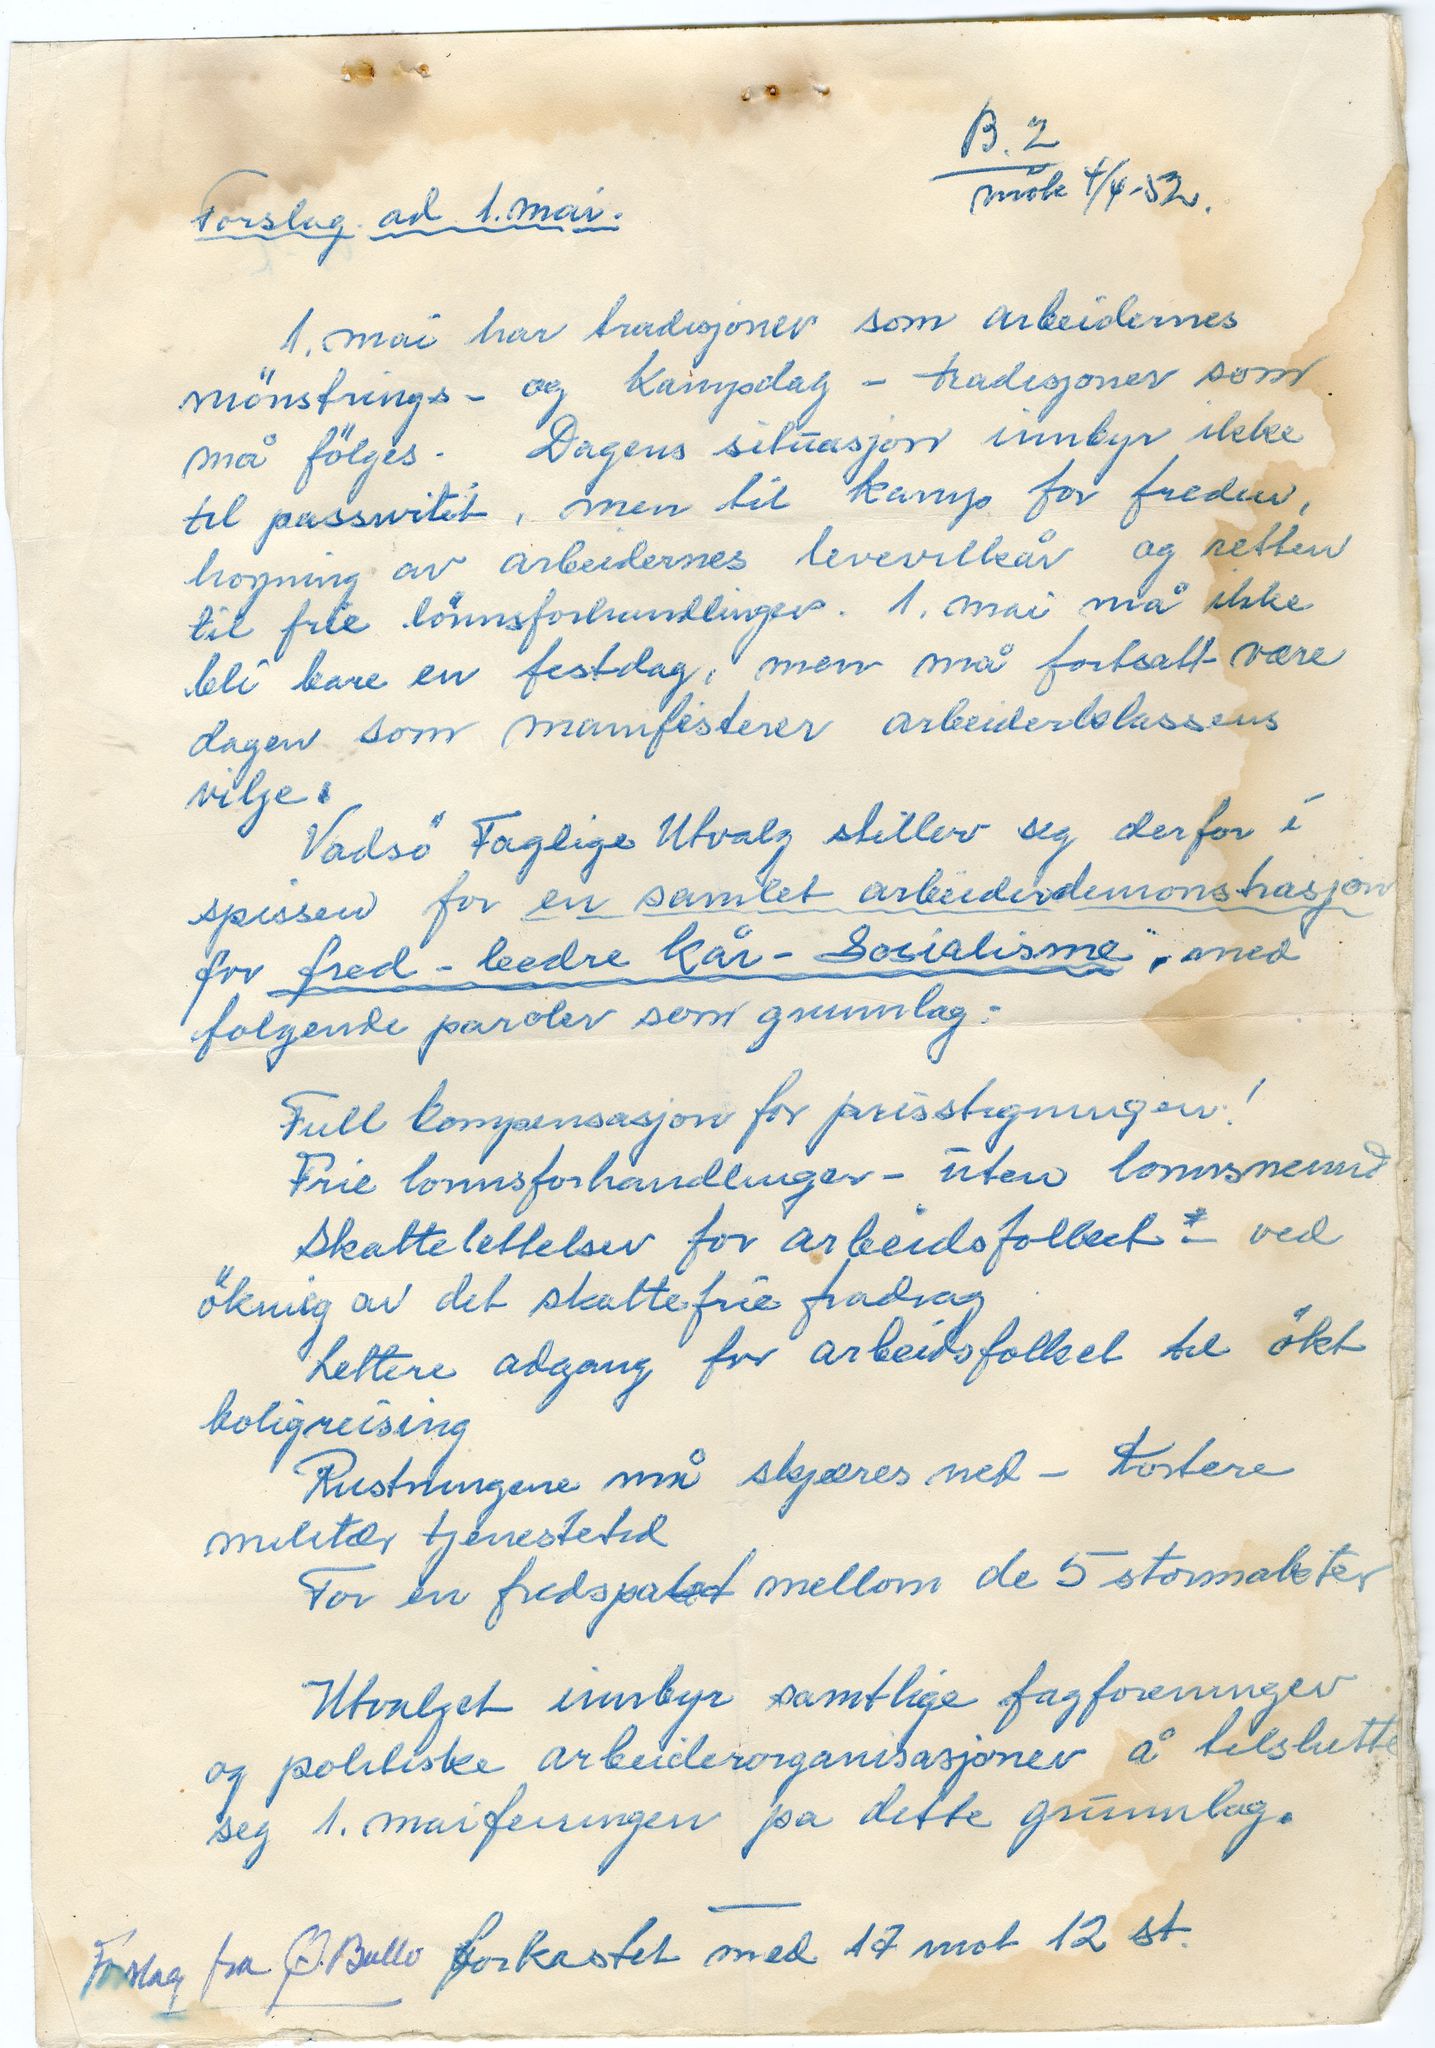 B. 2
möte 4/4-52.
Forslag ad 1. mai.
1. mai har tradisjoner som arbeidernes
mönstrings- og kampdag - tradisjoner som
må fölges. Dagens situasjon innbyr ikke
til passivitet, men til kamp for freden,
heyning av arbeidernes levevilkår og retten
til frie lönnsforhandlinger. 1. mai må ikke
bli bare en festdag, men må fortsatt være
dagen som manifisterer arbeiderklassens
vilje.
Vadsö Faglige Utvalg stiller seg derfor i
spissen for en samlet arbeiderdemonstrasjon
for fred - bedre kår - Sosialisme", med
folgende paroler som grunnlag:
Full kompensasjon for prisstigningen!
Frie lonnsforhandlinger - uten lonnsnemnd
Skattelettelser for arbeidsfolket - ved
ökning av det skattefrie fradrag
Lettere adgang for arbeidsfolket til ökt
boligreising
Rustningene må skjæres ned - Kortere
militær tjenestetid
For en fredspakt mellom de 5 stormakter
Utvalget innbyr samtlige fagforeninger
og politiske arbeiderorganisasjoner å tilslutte
seg 1. maifeiringen pa dette grunnlag.
Forslag fra Ö. Bullo forkastet med 17 mot 12 st.